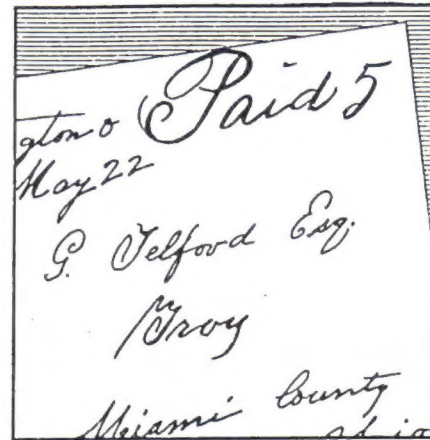 gton o Paid 5
May 22
G. Telford Esq.
Troy
Miami County
Ohio